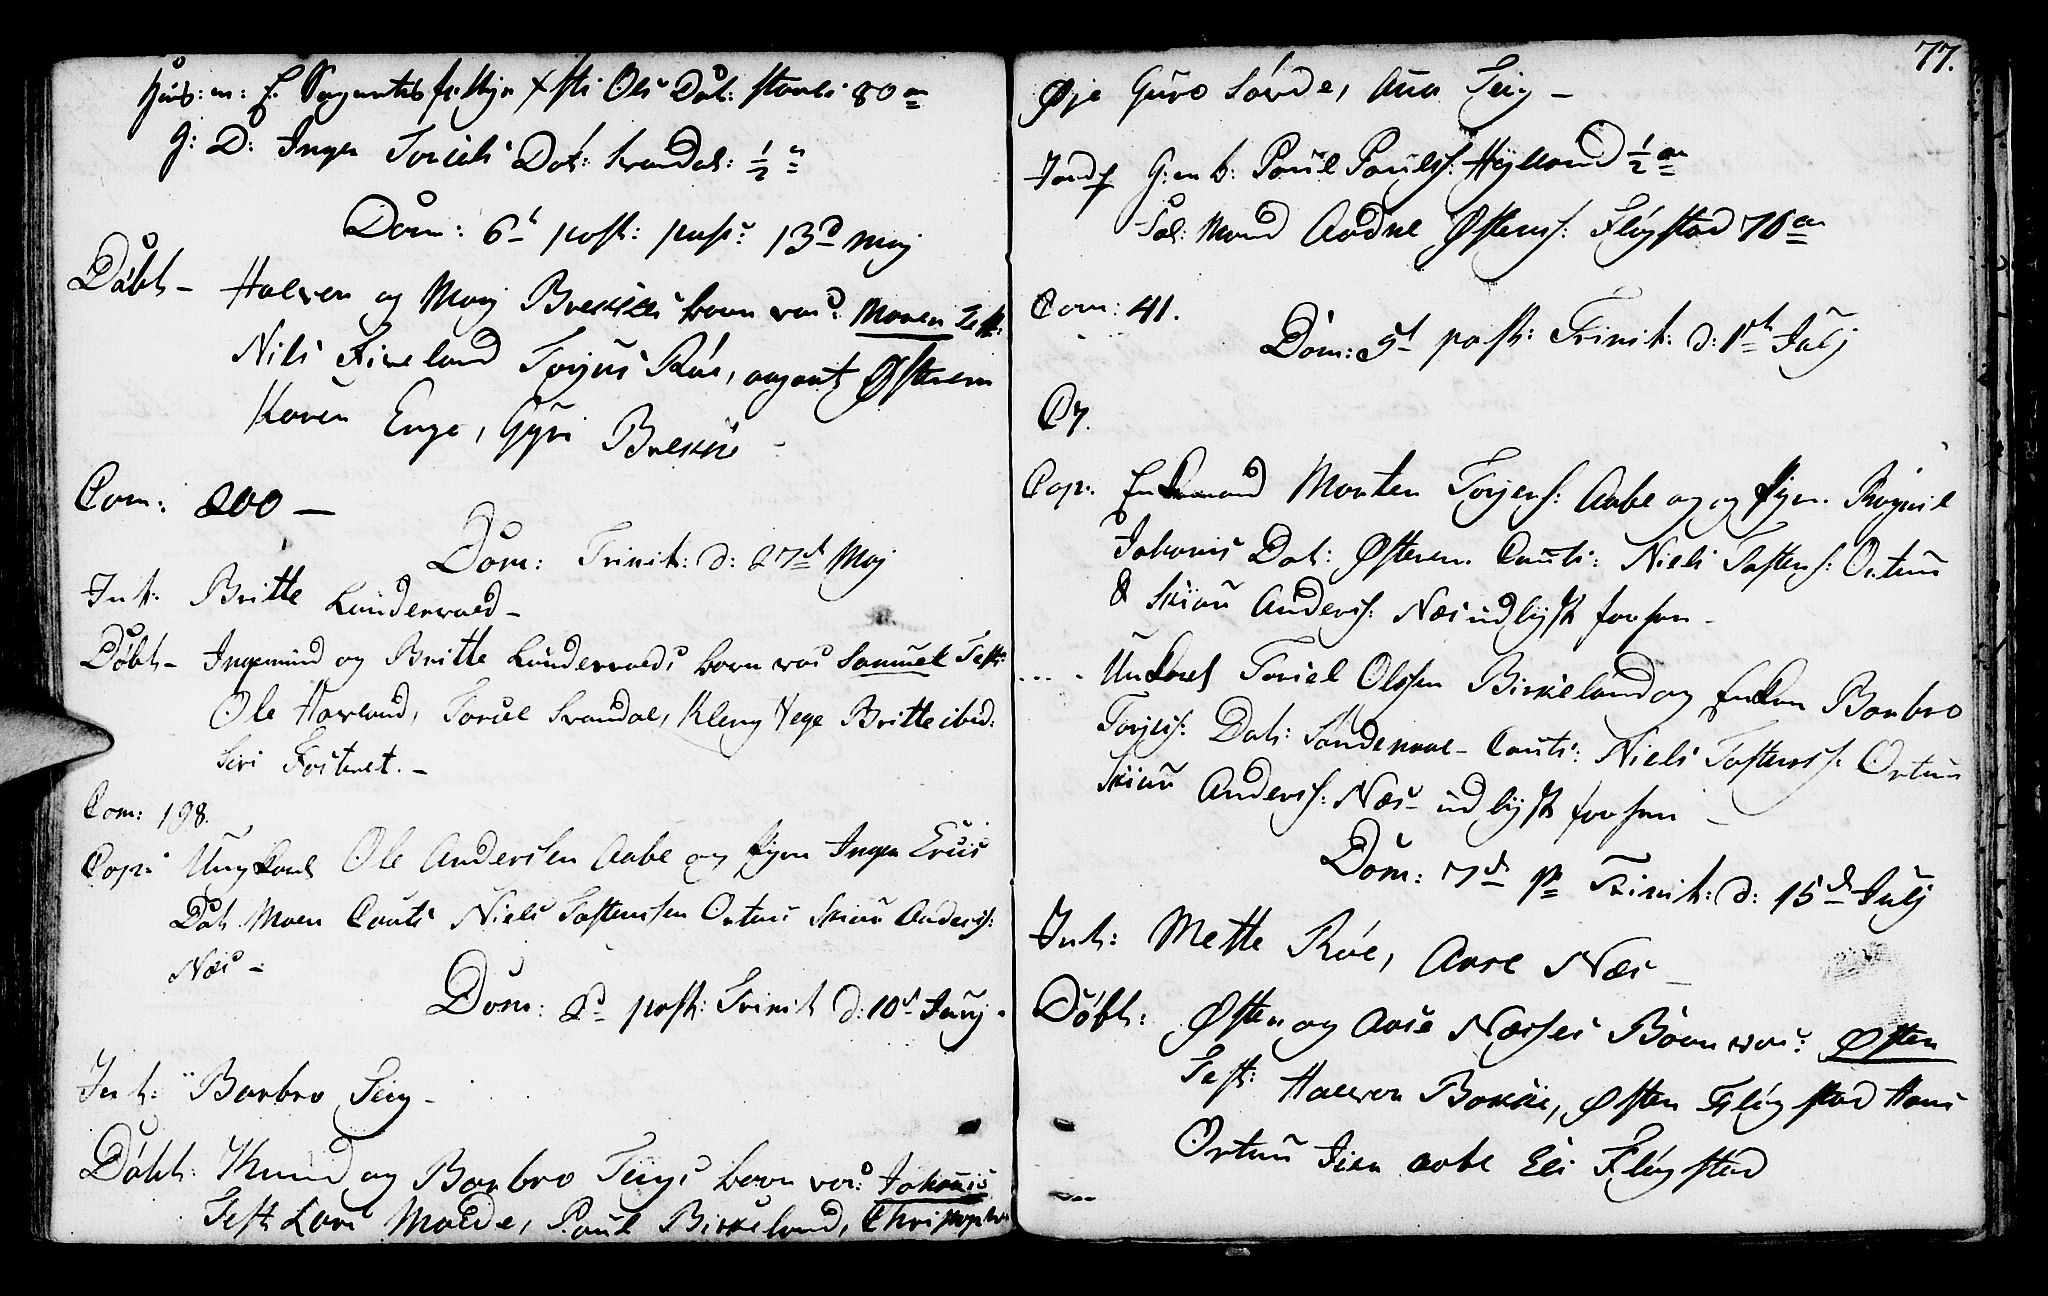 Huus: m: E. Sygnestvb fr. Skyr xsti Ols Dat: Stovli 80 an
G: D: Inger Toriels Dat: Svandal: ½ a
Dom: 6t post: pasc: 13d Maj
Döbt - Halvor og Marj Brekkes barn var: Maren Test:
Nils Fixeland Torjus Röe, Aagaat Østrem
Karen Enge, Gyri Brekke -
Com: 200 -
Dom: Trinit: d: 27de Maj
Int: Britte Lundervold -
Döbt - Ingemund og Britte Lundervolds barn var Samuel Test:
Ole Hovland, Toriel Svandal, Kleng Vege Britte ibid:
Siri Fosteret. -
Com: 198.
Cop: Ung Karl Ole Andersen Aabe og Pigen Inger Erics
Dat Moen Cauti Niels Tostensen Ortun Skiau Anders:
Næs -
Dom: 2d post: Trinit d: 10de Junj.
Int: Barbro Teig -
Döbt: Knud og Barbro Teigs barn var: Johanis
Test Lars Molde, Paul Birkeland, Christopher
77.
Øje Guro Sövde, Ana Teig -
Jordf G: m b: Poul Pouls: Hylland ½ an
Sal: Mand Aadne Østens: Flöystad 76 an
Com: 41.
Dom: 5t post: Trinit: d: 1ste Julj
Cop: Enkemand Morten Torjers: Aabe og og Pigen Rognil
Johanis Dat: Østrem Cauti: Niels Tostens: Ortun
& Skiau Anders: Næs udlyst forhen -
... - Unkarl Toriel Olssen Birkeland og Enken Barbro
Torjus: Dat: Sandenaae - Cauti: Niels Tostens: Ortun
Skiau Anders: Næs - udlyst forhen -
Dom: 7de p Trinit: d: 15de Julj
Int: Mette Röe, Aase Næs -
Döbt: Østen og Aase Næsses Börn var: Østen
Test: Halvor Bakke, Østen Flöystad Hans
Ortun Siri Aabe Eli Flöystad